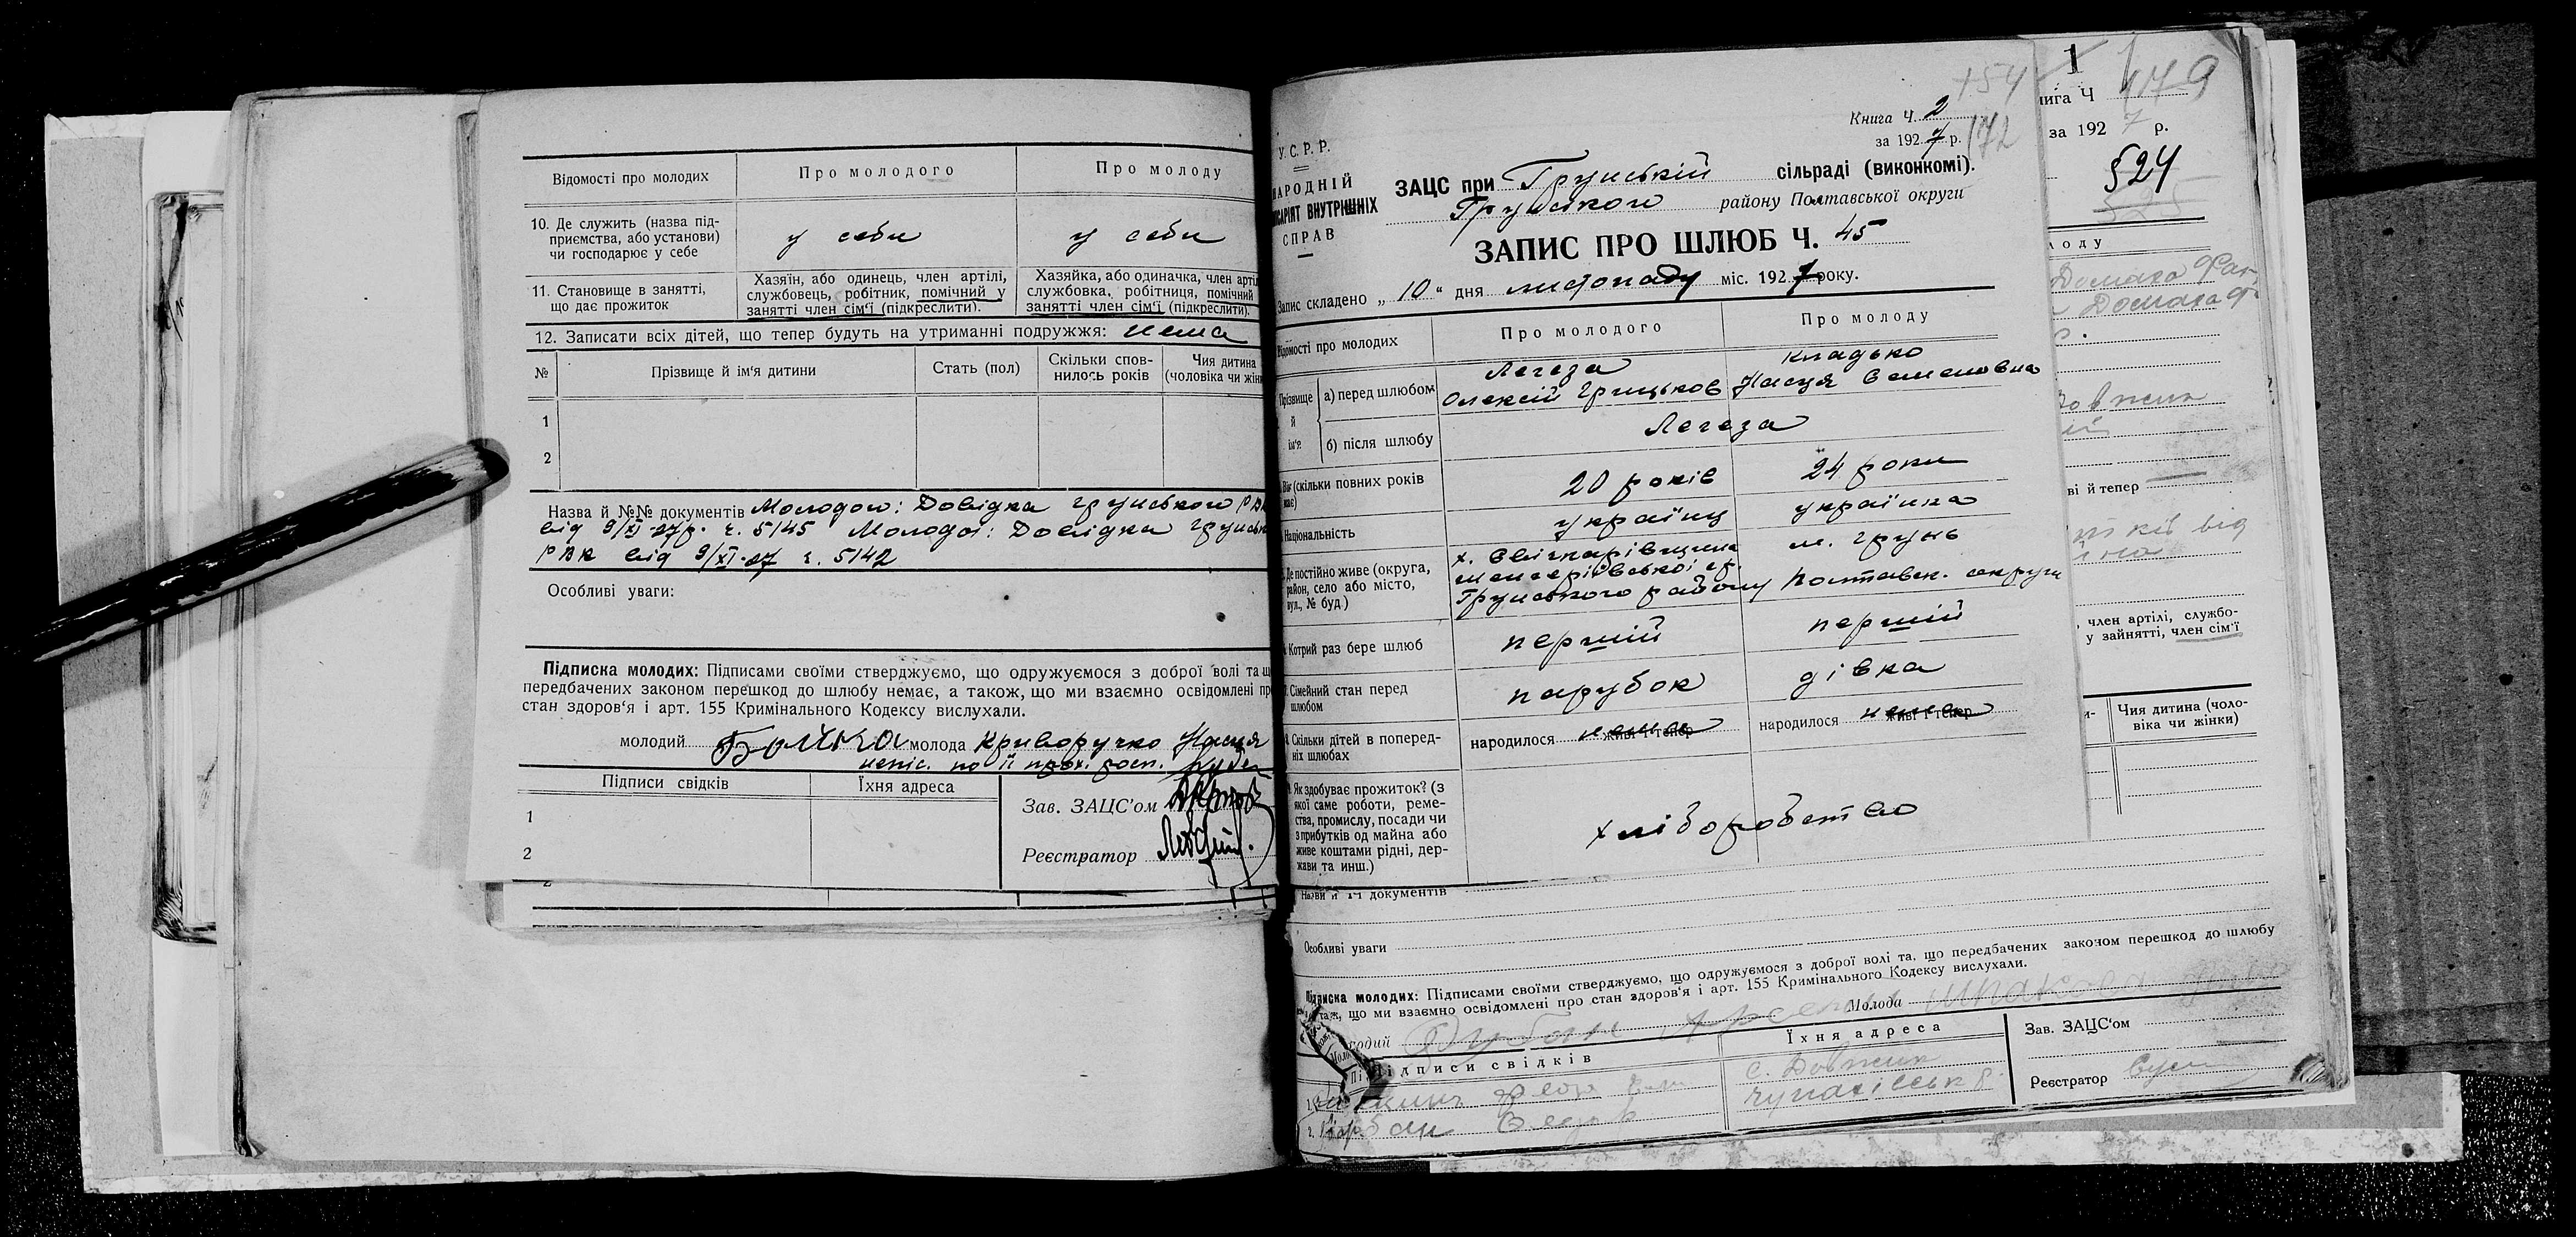 Відомості про молодих
Про молодого
Про молоду
10. Де служить (назва під-
приємства, або установи)
чи господарює у себе
у себи
у себи
11. Становище в занятті,
що дає прожиток
Хазяїн, або одинець, член артілі,
службовець, робітник, помічний у
занятті член сім'ї (підкреслити).
Хазяйка, або одиначка, член арті
службовка, робітниця, помічний
занятті член сім'ї (підкреслити).
12. Записати всіх дітей, що тепер будуть на утриманні подружжя: нема
№
Прізвище й ім'я дитини
Стать (пол)
Скільки спов-
нилось років
Чия дитина
(чоловіка чи жін
1
2
Назва й №№ документів Молодого: Довідка грунського РВК
від 9/XI-27р. ч. 5145 Молодої: Довідка грунськ
РВК від 9/XI-27 ч. 5142
Особливі уваги:
Підписка молодих: Підписами своїми стверджуємо, що одружуємося з доброї волі та що
передбачених законом перешкод до шлюбу немає, а також, що ми взаємно освідомлені про
стан здоров'я і арт. 155 Кримінального Кодексу вислухали.
молодий молода Криворучко Настя
непіс. по її прох. росп.
Підписи свідків
Їхня адреса
1
2
Зав. ЗАЦС'ом
Реєстратор
154
Книга Ч. 2
за 1927 р. 172
У.С.Р.Р.
НАРОДНІЙ
КОМІСАРІЯТ ВНУТРІШНІХ
СПРАВ
ЗАЦС при Грунській сільраді (виконкомі).
Грунського району Полтавської округи
ЗАПИС ПРО ШЛЮБ Ч. 45
Запис складено „10" дня листопаду міс. 1927 року.
Відомості про молодих
Про молодого
Про молоду
Прізвище
й
ім'я
а) перед шлюбом
Легеза
Олексій Грицьков
Кладько
Настя Семеновна
б) після шлюбу
Легеза
Вік (скільки повних років
має)
20 років
24 роки
Національність
українц
українка
Де постійно живе (округа,
район, село або місто,
вул., № буд.)
х. Свічкарівщина
м. Грунь
Грунського району Полтавськ. округи
Котрий раз бере шлюб
перший
перший
7. Сімейний стан перед
шлюбом
парубок
дівка
Скільки дітей в поперед-
ніх шлюбах
народилося нема живі і тепер
народилося нема живі і тепер
Як здобуває прожиток? (з
якої саме роботи, реме-
ства, промислу, посади чи
з прибутків од майна або
живе коштами рідні, дер-
жави та инш.)
хліборобство
1
нига Ч 179
за 1927 р.
§24
лоду
Домаха
Домаха
ві й тепер
від
, член артілі, службо-
у зайнятті, член сім'ї
Чия дитина (чоло-
віка чи жінки)
Назви й документів
Особливі уваги
Підписка молодих: Підписами своїми стверджуємо, що одружуємося з доброї волі та, що передбачених законом перешкод до шлюбу
таж, що ми взаємно освідомлені про стан здоров'я і арт. 155 Кримінального Кодексу вислухали.
Молода
Підписи свідків
Їхня адреса
с. Довжик
Зав. ЗАЦС'ом
Реєстратор